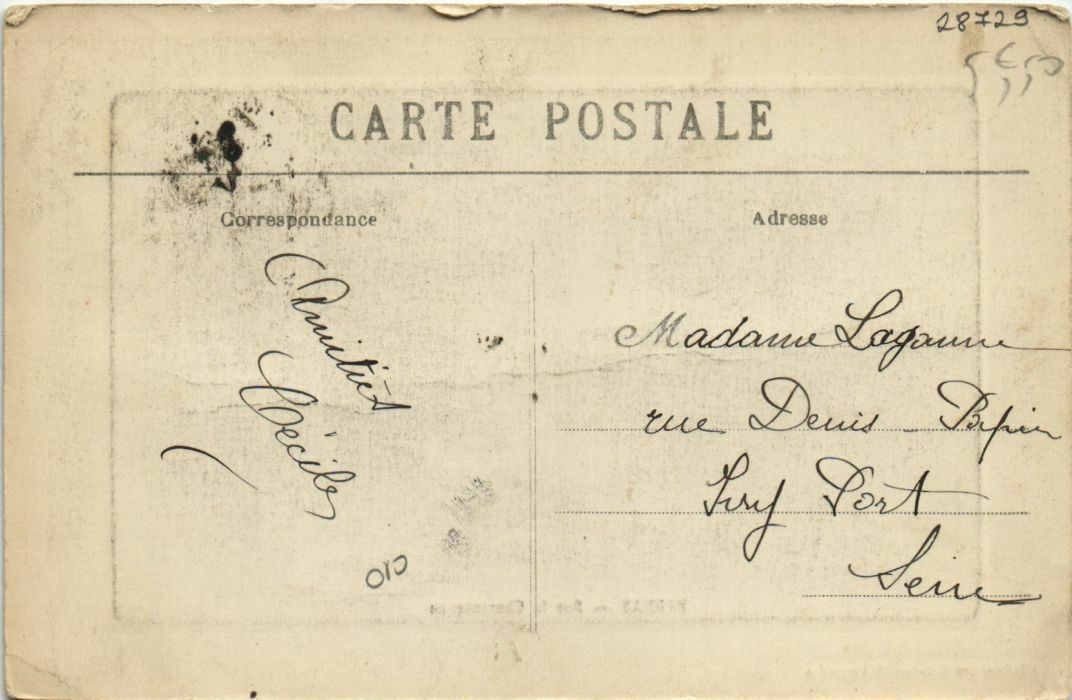 28729
CARTE POSTALE
Correspondance
Adresse
Amitiés
Cécile
Madame Laganne
rue Denis - Papin
Ivry Port
Seine